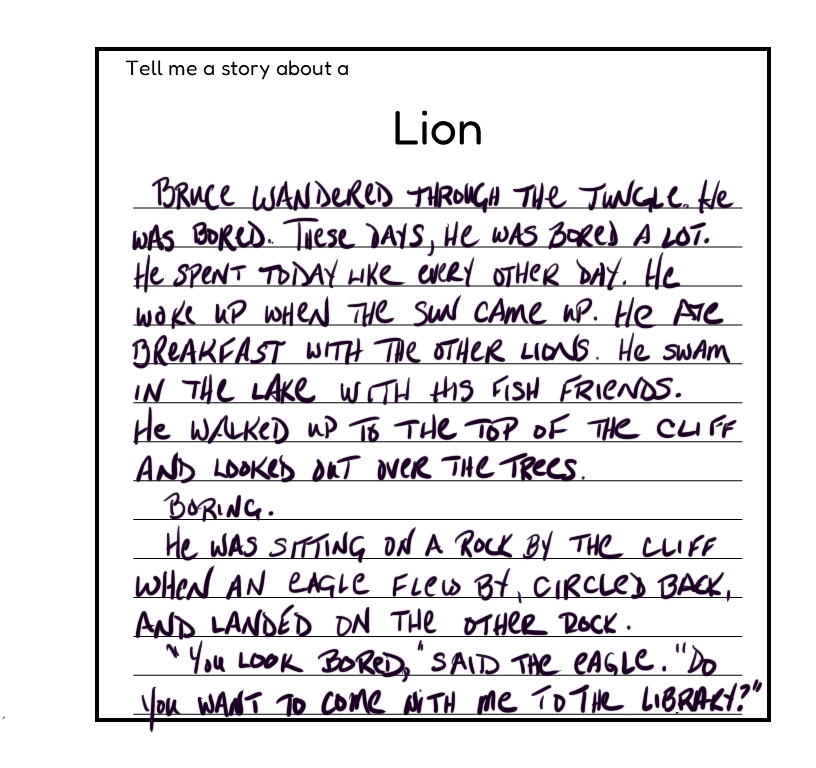 Tell me a story about a
Lion
BRUCE WANDERED THROUGH THE JUNGLE. HE
WAS BORED. THESE DAYS, HE WAS BORED A LOT.
HE SPENT TODAY LIKE EVERY OTHER DAY. HE
WOKE UP WHEN THE SUN CAME UP. HE ATE
BREAKFAST WITH THE OTHER LIONS. HE SWAM
IN THE LAKE WITH HIS FISH FRIENDS.
HE WALKED UP TO THE TOP OF THE CLIFF
AND LOOKED OUT OVER THE TREES.
BORING.
HE WAS SITTING ON A ROCK BY THE CLIFF
WHEN AN EAGLE FLEW BY, CIRCLED BACK,
AND LANDED ON THE OTHER ROCK.
"YOU LOOK BORED," SAID THE EAGLE. "DO
YOU WANT TO COME WITH ME TO THE LIBRARY?"